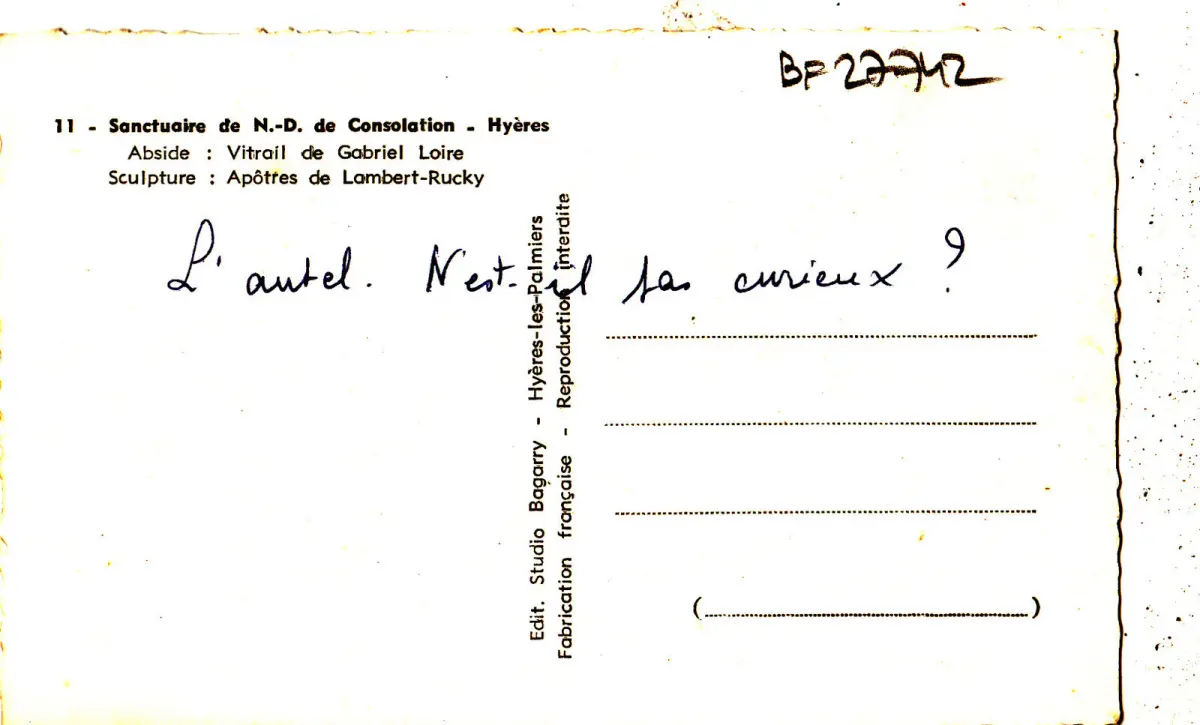 BF 27742
11 - Sanctuaire de N.-D. de Consolation - Hyères
Abside : Vitrail de Gabriel Loire
Sculpture : Apôtres de Lambert-Rucky
L'autel. N'est-il pas curieux ?
Edit. Studio Bagarry - Hyères-les-Palmiers
Fabrication française - Reproduction interdite